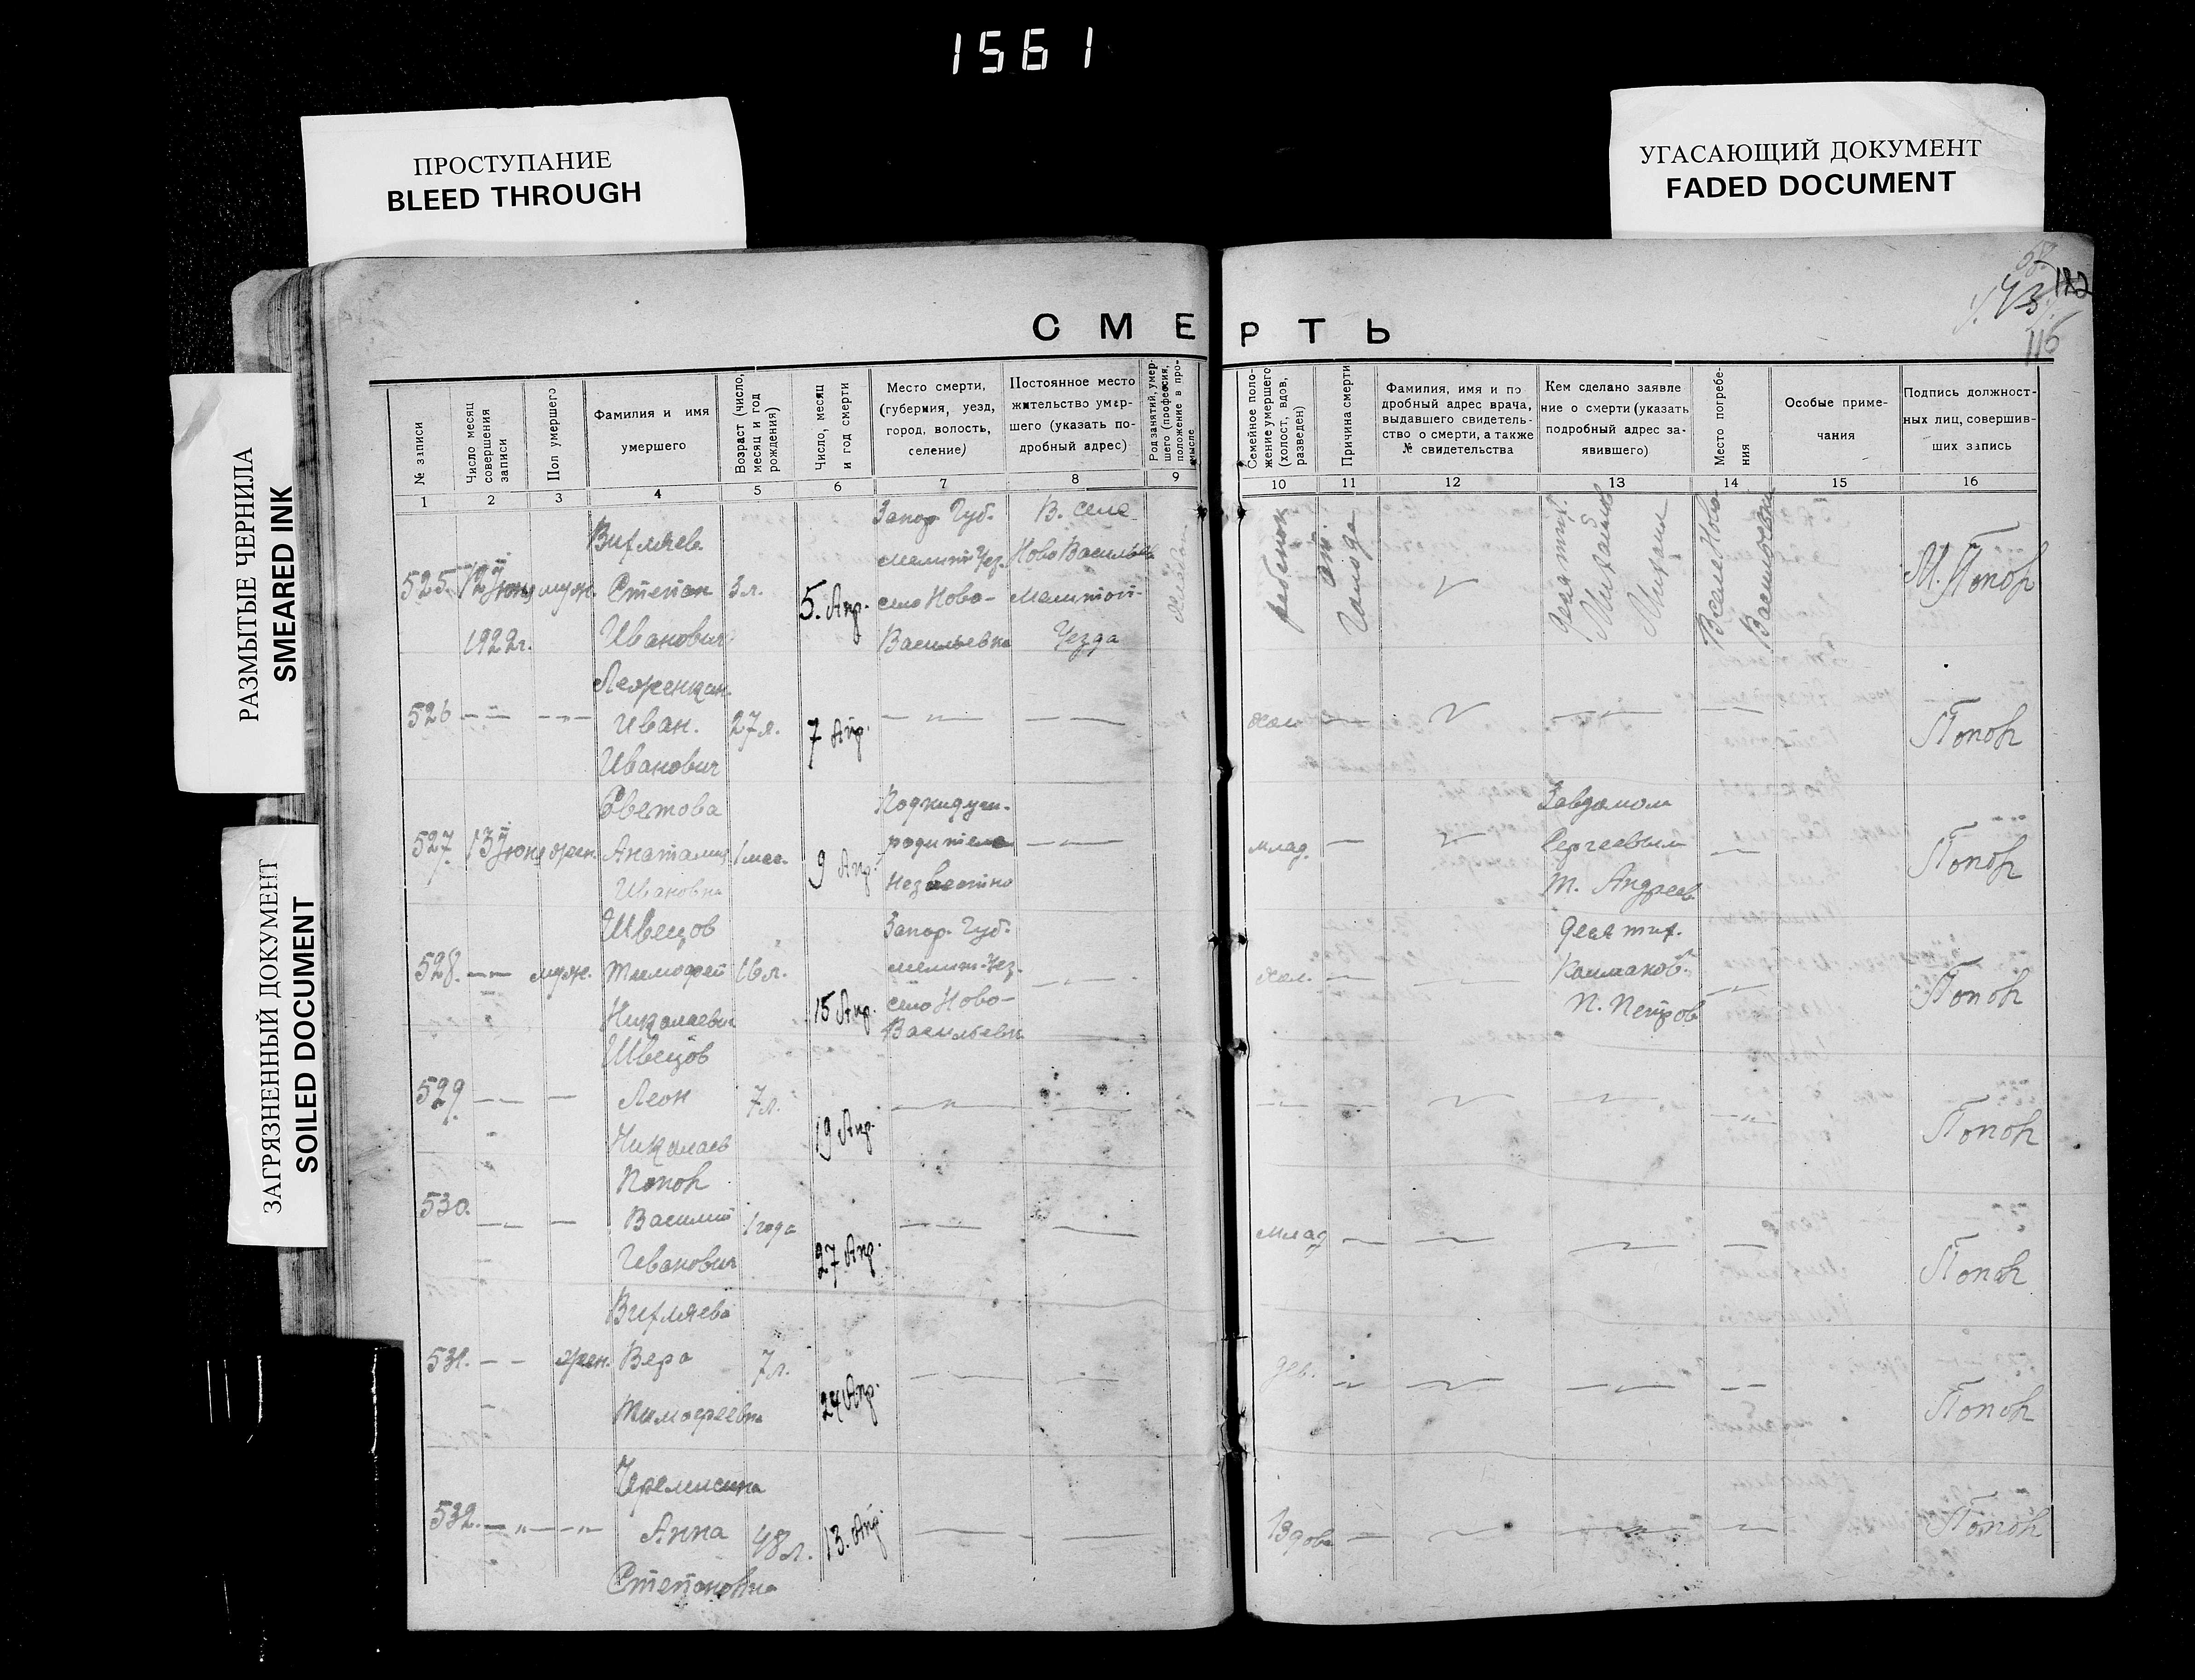 1561
ПРОСТУПАНИЕ
BLEED THROUGH
УГАСАЮЩИЙ ДОКУМЕНТ
FADED DOCUMENT
РАЗМЫТЫЕ ЧЕРНИЛА
SMEARED INK
ЗАГРЯЗНЕННЫЙ ДОКУМЕНТ
SOILED DOCUMENT
182
116
СМЕРТЬ
№ записи
Число месяц
совершения
записи
Пол умершего
Фамилия и имя
умершего
Возраст (число,
месяц и год
рождения)
Число, месяц
и год смерти
Место смерти,
(губерния, уезд,
город, волость,
селение)
Постоянное место
жительство умер-
шего (указать по-
дробный адрес)
Род занятий, умер-
шего (профессия,
положение в про-
мысле
Семейное поло-
жение умершего
(холост, вдов,
разведен)
Причина смерти
Фамилия, имя и по
дробный адрес врача,
выдавшего свидетель-
ство о смерти, а также
№ свидетельства
Кем сделано заявле
ние о смерти (указать
подробный адрес за-
явившего)
Место погребе-
ния
Особые приме-
чания
Подпись должност-
ных лиц, совершив-
ших запись
1 2 3 4 5 6 7 8 9 10 11 12 13 14 15 16
525. 12 Июня
1922г.
муж.
Степан
Иванович
3 л.
5. Апр.
Запор. Губ.
мелит. Уез.
село Ново-
Васильевка
В. селе
Ново Васильев
Мелитоп-
Уезда
ребенок
от
голода
Михайлов
Михаил
В селе Ново
Васильевки
М. Попов
526 — —
Иван.
Иванович
27 л.
7 Апр.
хол.
Попов
527. 13 Июня жен.
Светова
Ивановна
1 мес.
9 Апр.
Подкидуш.
родители
неизвестно
млад.
Завдомом
Сергеевым
Т. Андреев
Попов
528. — — муж.
Швецов
Тимофей
Николаевич
16 л.
15 Апр.
Запор. Губ.
мелит. Уез.
село Ново-
Васильевк
хол.
Колмаков.
П. Петров
Попов
529. — —
Швецов
Леон
Николаев
7 л.
19 Апр.
Попов
530. — —
Попов
Василий
Иванович
1 года
27 Апр.
млад
Попов
531. — — жен.
Вера
Тимофеевна
7 л.
24 Апр.
дев.
Попов
532. — " — — " —
Черемисина
Анна
Степановна
48 л.
13. Апр.
Вдова
Попов